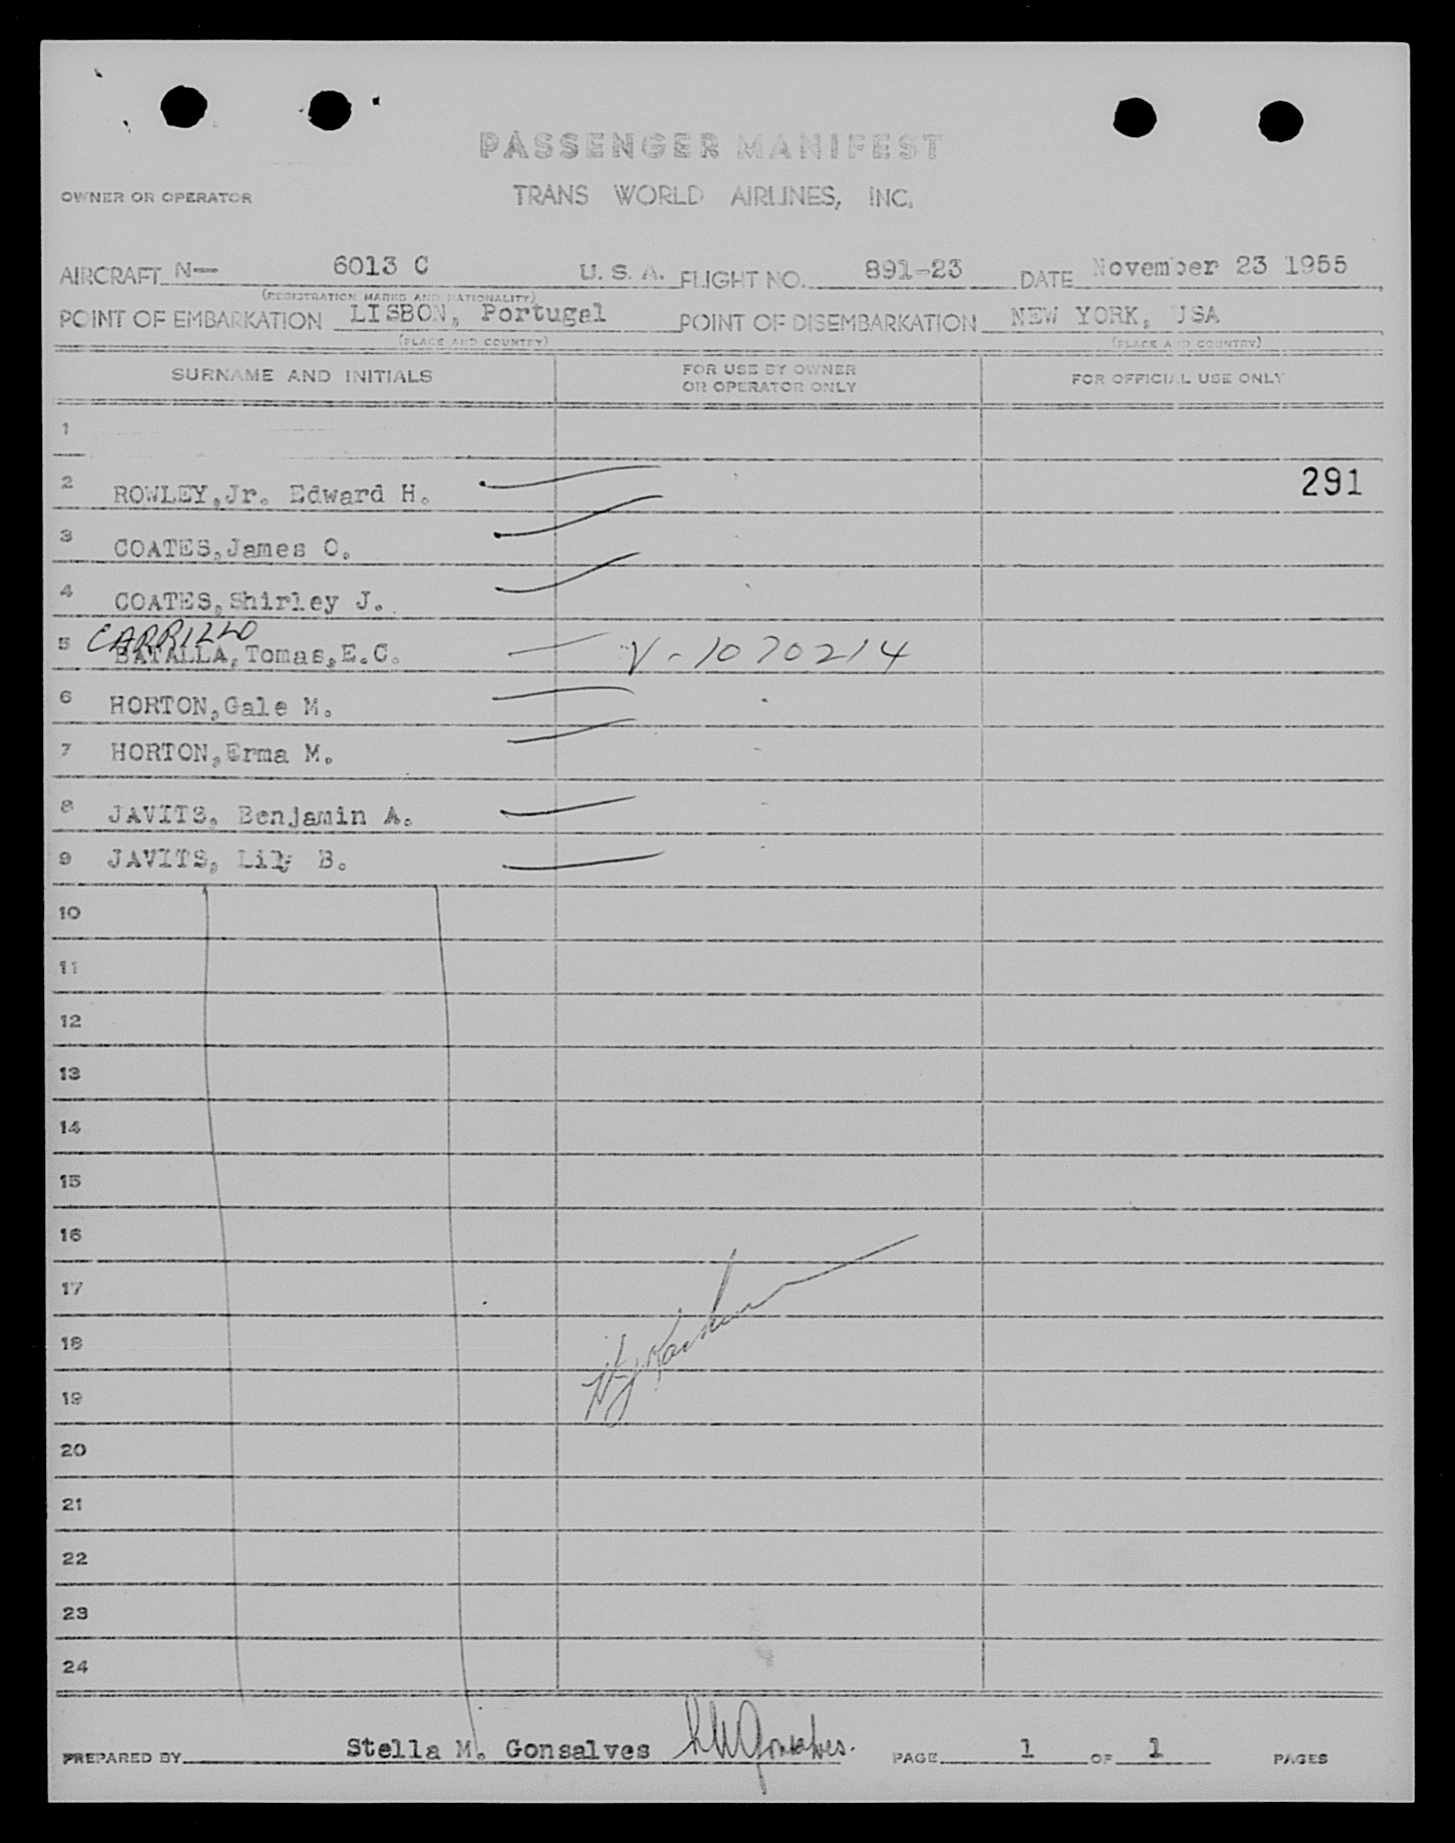 PASSENGER MANIFEST
OWNER OR OPERATOR TRANS WORLD AIRLINES, INC.
AIRCRAFT N-- 6013 C U.S.A. FLIGHT NO. 891-23 DATE November 23 1955
(REGISTRATION MARKS AND NATIONALITY)
POINT OF EMBARKATION LISBON, Portugal POINT OF DISEMBARKATION NEW YORK, USA
(PLACE AND COUNTRY) (PLACE AND COUNTRY)
SURNAME AND INITIALS FOR USE BY OWNER OR OPERATOR ONLY FOR OFFICIAL USE ONLY
1
2 ROWLEY,Jr. Edward H. 291
3 COATES,James O.
4 COATES,Shirley J.
CARRILLO
5 BATALLA,Tomas,E.C. V-1070214
6 HORTON,Gale M.
7 HORTON,Erma M.
8 JAVITS, Benjamin A.
9 JAVITS, Lily B.
10
11
12
13
14
15
16
17
18
19
20
21
22
23
24
PREPARED BY Stella M. Gonsalves SMGonsalves. PAGE 1 OF 1 PAGES